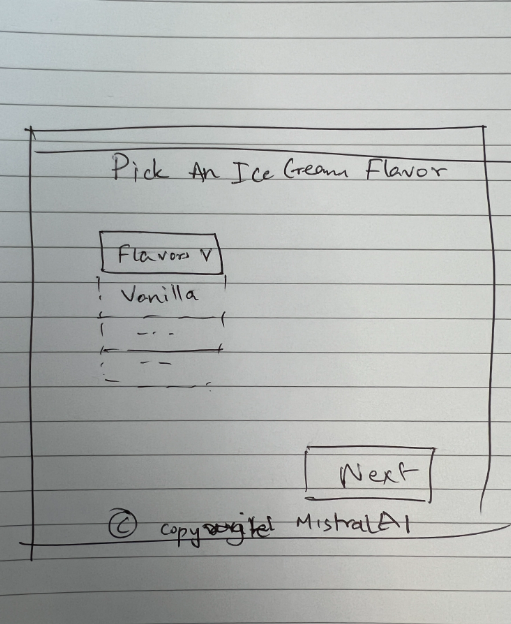 Pick An Ice Cream Flavor
Flavors V
Vanilla
- - -
- -
Next
© MistralAI